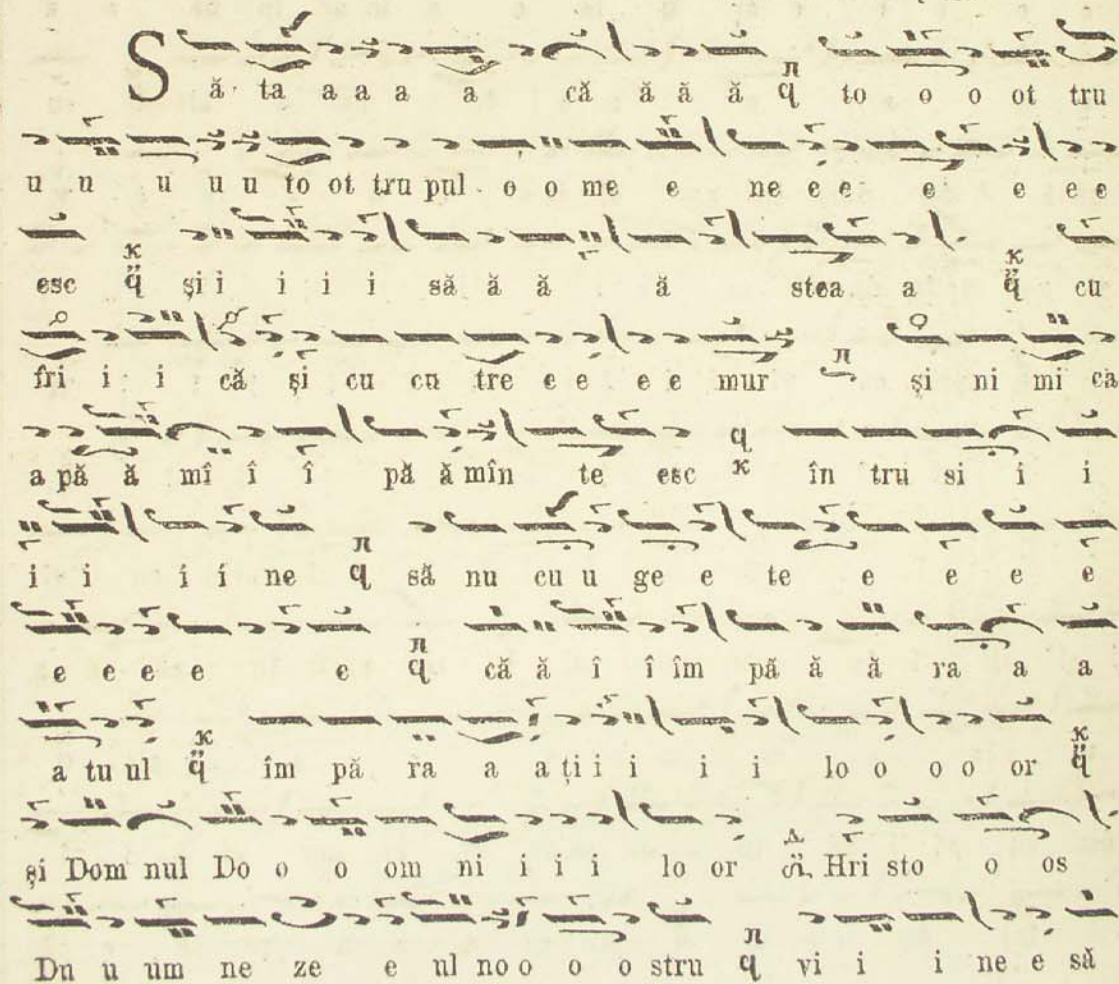 Să ta a a a a că ă ă ă to o o ot tru
u u u u u to ot tru pul o o me e ne e e e e e e
esc și i i i i să ă ă ă stea a cu
fri i i că și cu cu tre e e e e mur și ni mi ca
a pă ă mî î î pă ă mîn te esc în tru si i i
i i i i ne să nu cu u ge e te e e e e
e e e e e că ă î î îm pă ă ă ra a a
a tu ul îm pă ra a a ți i i i i lo o o o or
și Dom nul Do o o om ni i i i lo or Hri sto o os
Du u um ne ze e ul no o o o stru vi i i ne e să